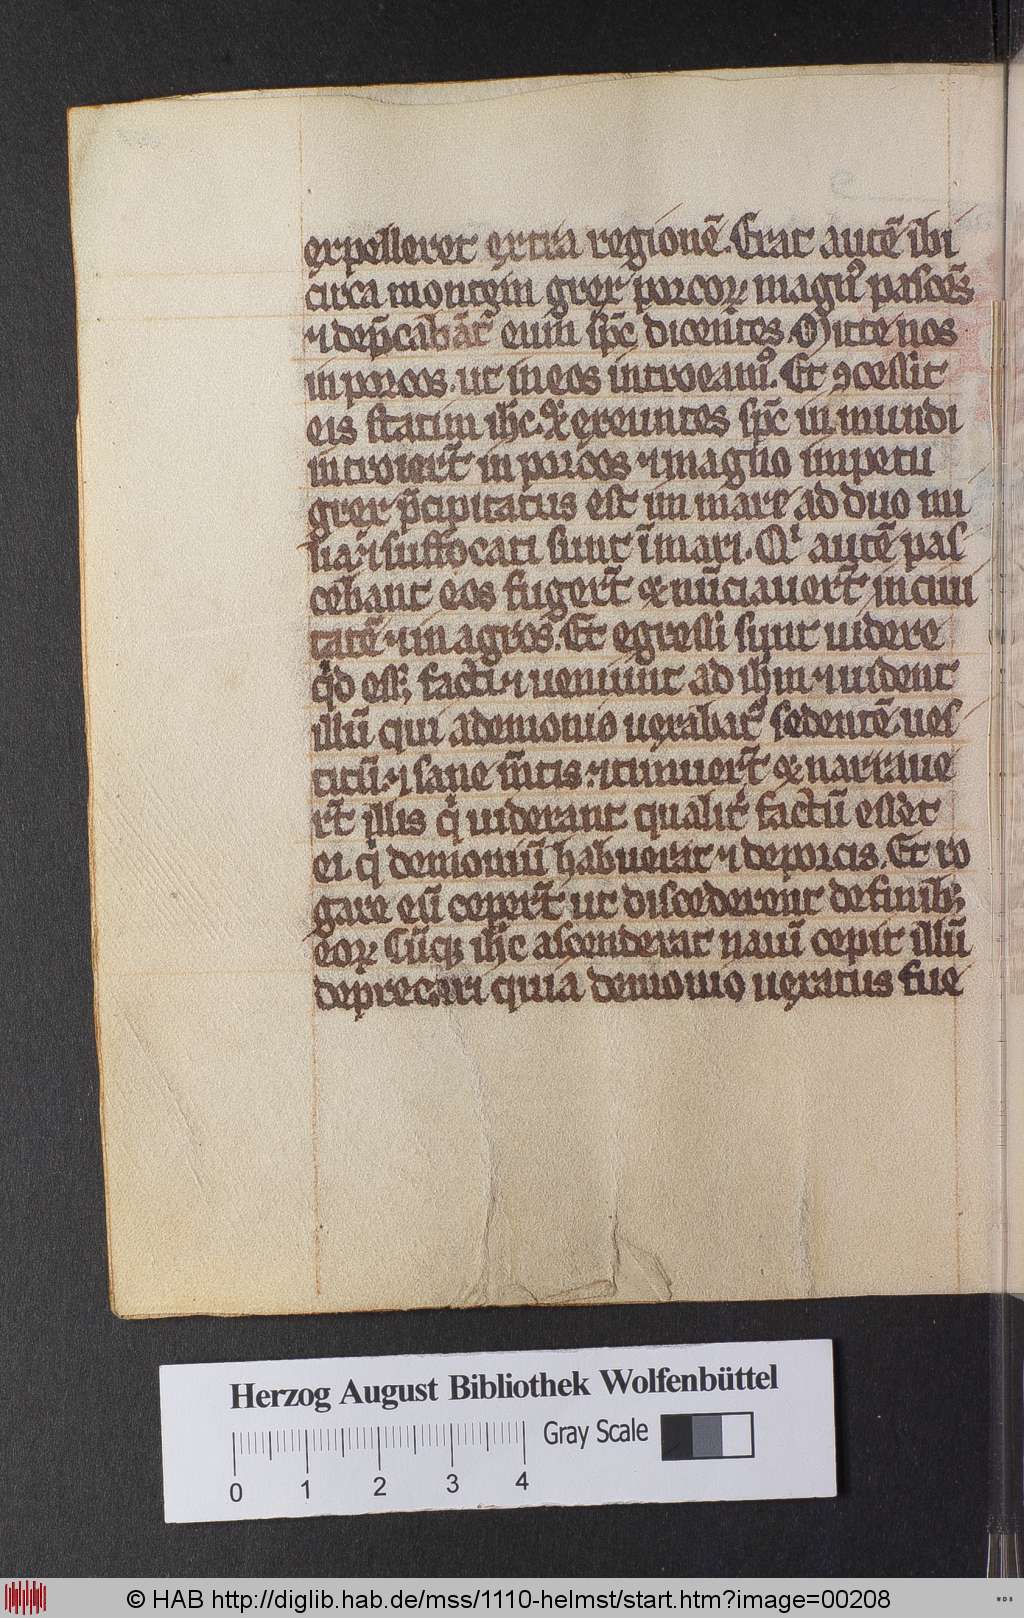 expelleret extra regionē. Erat autē ibi
circa montem grex porcoꝝ magnꝰ pascēs
⁊ dep̄cabāt᷑ eum sp̄c dicentes. Mitte nos
in porcos. ut in eos introeamꝰ. Et ꝯcessit
eis statim ih̄c. ⁊ exeuntes sp̄c in mundi
introier̄t in porcos ⁊ magno impetu
grex p̄cipitatus est in mare ad duo mi
lia. ⁊ suffocati sunt ī mari. Qͥ autē pas
cebant eos fuger̄t ⁊ nūciauer̄t in ciui
tatē ⁊ in agros. Et egressi sunt uidere
qͥd ess; facti ⁊ ueniunt ad ih̄m ⁊ uident
illū qui a demonio uexabat᷑ sedentē ues
titū. ⁊ sane m̄tis. ⁊ timuer̄t ⁊ narraue
r̄t illis qͥ uiderant qualit᷑ factū esset
ei. qͥ demoniū habuerat ⁊ de porcis. Et ro
gare eū ceper̄t ut discederent de finibꝫ
eoꝝ Cūqꝫ ih̄c ascenderat nauī cepit illū
deprecari quia demonio uexatus fue
Herzog August Bibliothek Wolfenbüttel
Gray Scale
0 1 2 3 4
© HAB http://diglib.hab.de/mss/1110-helmst/start.htm?image=00208